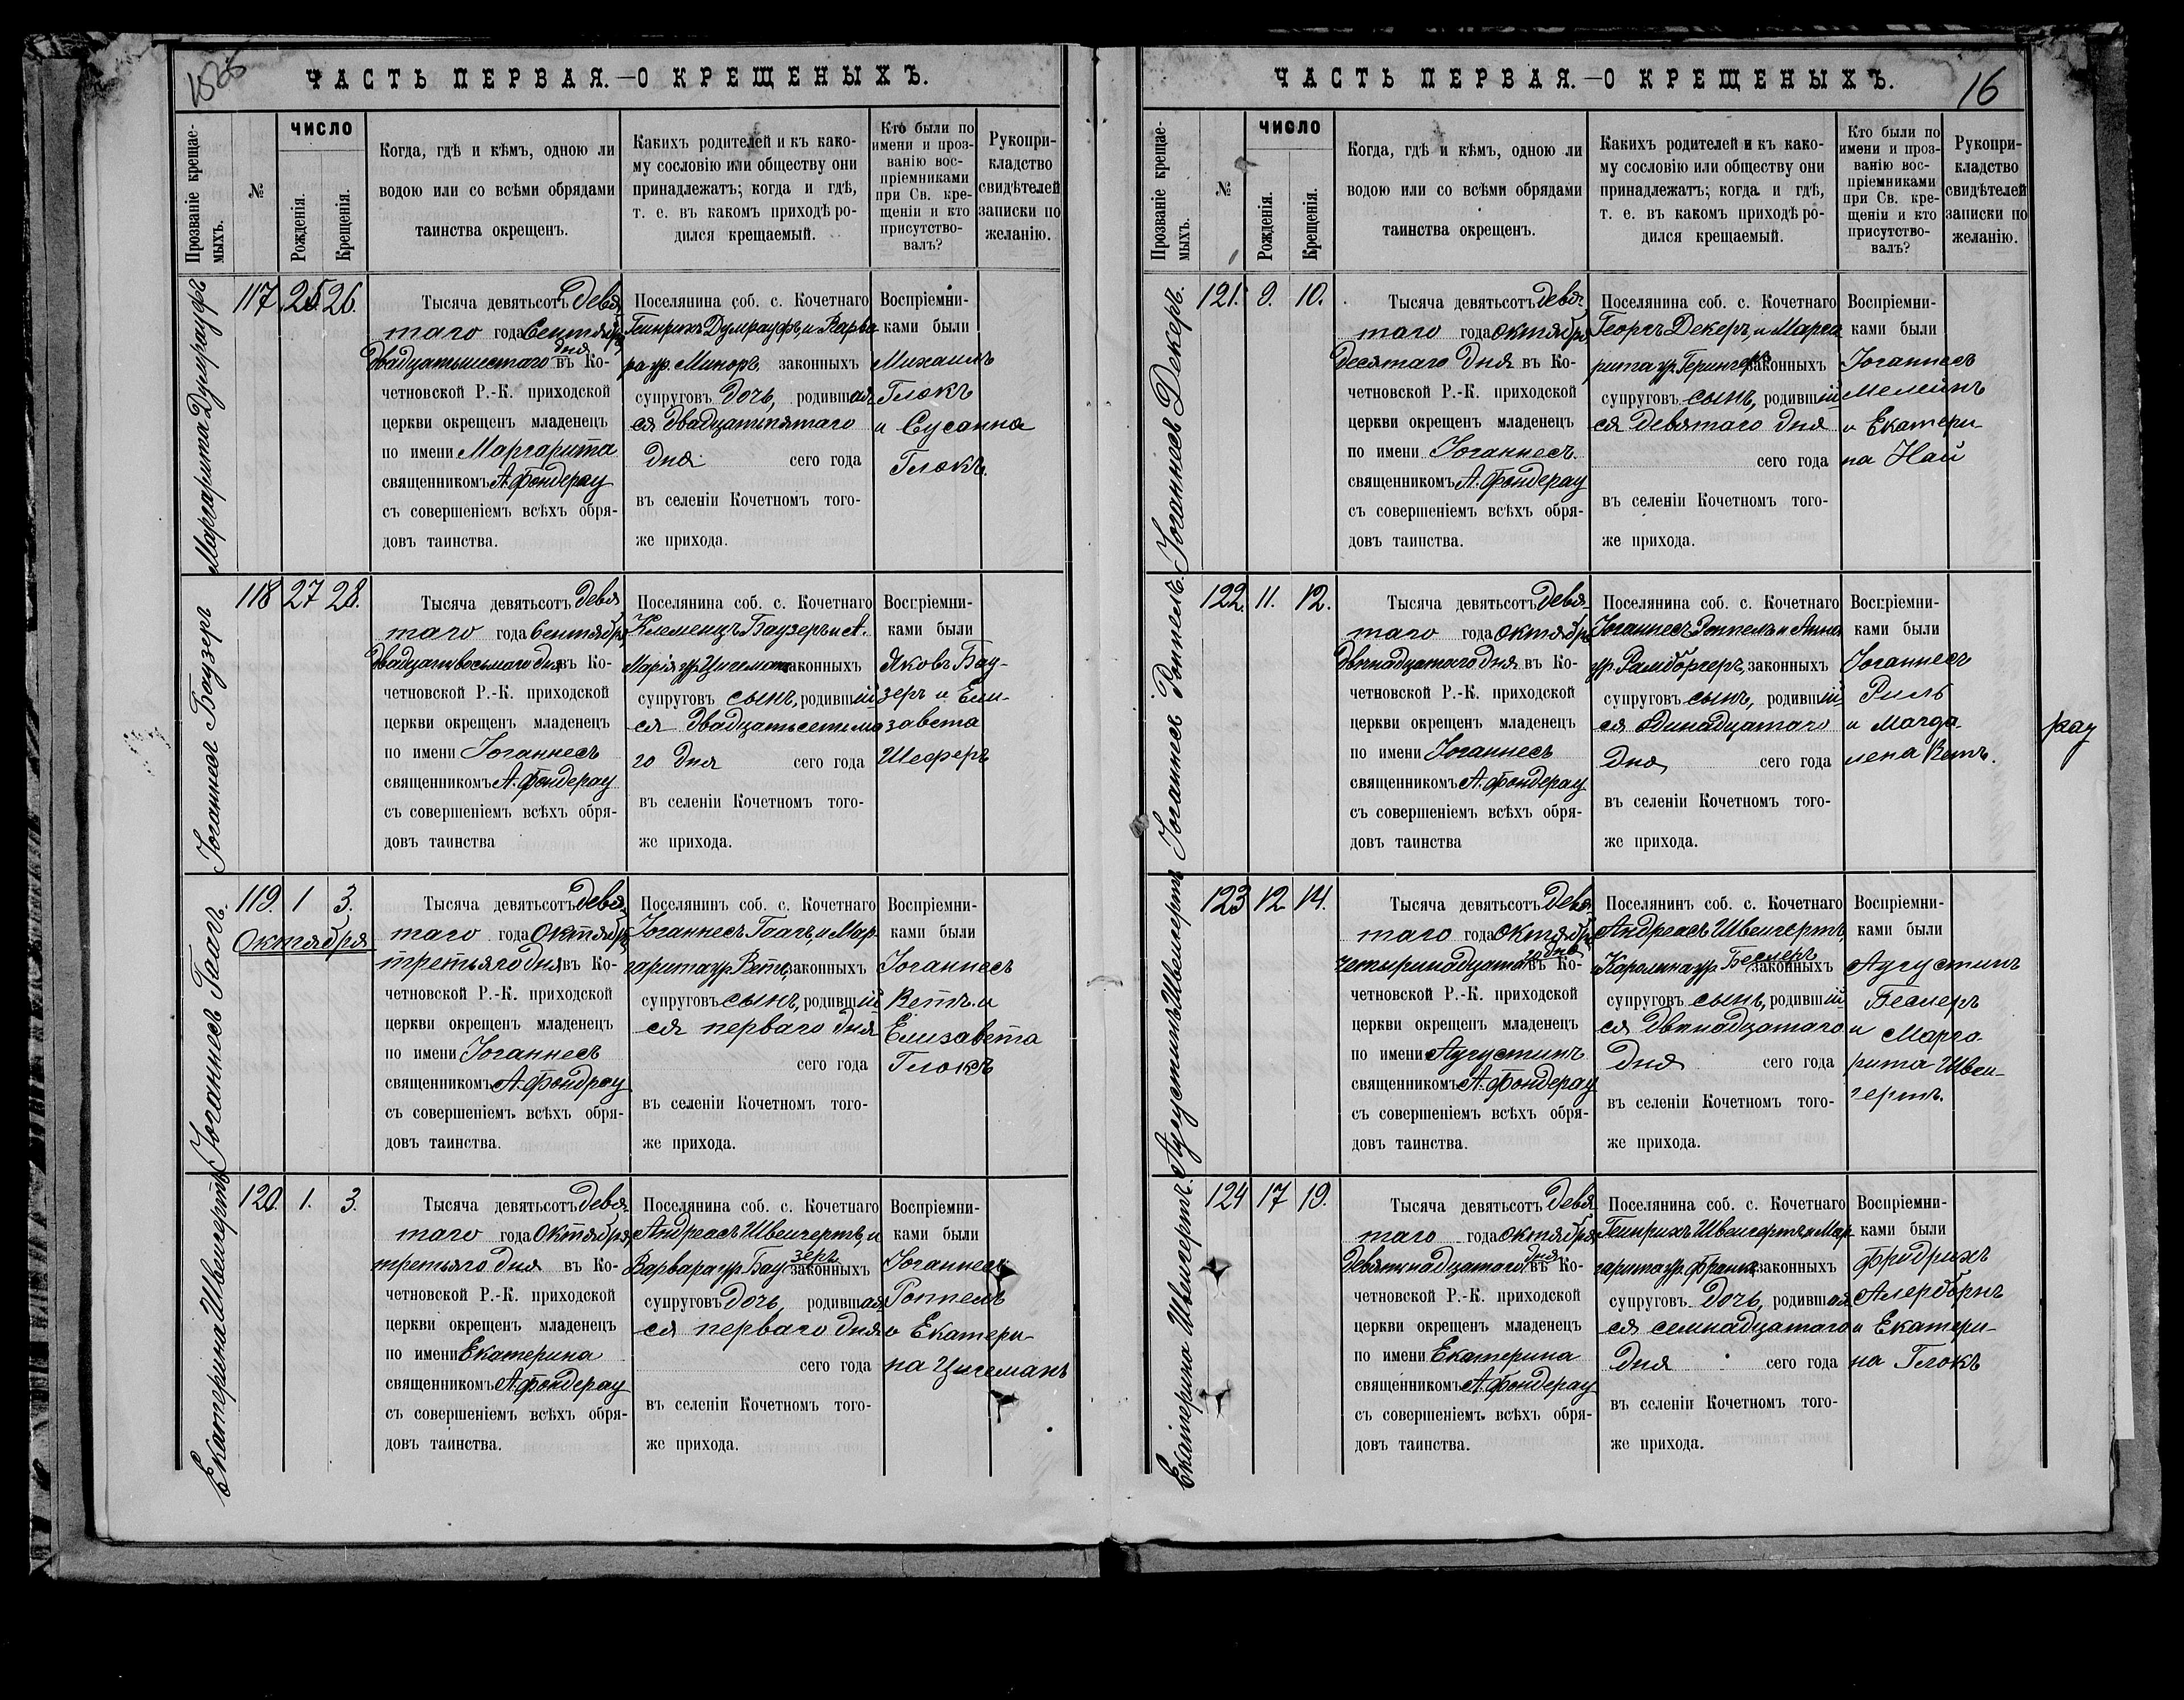 ЧАСТЬ ПЕРВАЯ.—О КРЕЩЕНЫХЪ.
Прозваніе крещаемыхъ.
№
ЧИСЛО
Рожденія.
Крещенія.
Когда, гдѣ и кѣмъ, одною ли
водою или со всѣми обрядами
таинства окрещенъ.
Какихъ родителей и къ како-
му сословію или обществу они
принадлежатъ; когда и гдѣ,
т. е. въ какомъ приходѣ ро-
дился крещаемый.
Кто были по
имени и проз-
ванію вос-
пріемниками
при Св. кре-
щеніи и кто
присутство-
валъ?
Рукопри-
кладство
свидѣтелей
записки по
желанію.
Маргарита Думрауфъ
117 25 26.
Тысяча девятьсотъ девя-
таго года Сентября
двадцатьшестаго дня въ Ко-
четновской Р.-К. приходской
церкви окрещенъ младенецъ
по имени Маргарита
священникомъ А. Фондерау
съ совершеніемъ всѣхъ обря-
довъ таинства.
Поселянина соб. с. Кочетнаго
Генрихъ Думрауфъ, и Варва
ра ур. Миноръ, законныхъ
супруговъ дочь, родившая
ся двадцатьпятаго
дня сего года
въ селеніи Кочетномъ того-
же прихода.
Воспріемни-
ками были
Михаилъ
Глокъ
и Сусанна
Глокъ.
Іоганнесъ Баузеръ
118 27 28.
Тысяча девятьсотъ девя
таго года Сентября
двадцатьвосьмаго дня въ Ко-
четновской Р.-К. приходской
церкви окрещенъ младенецъ
по имени Іоганнесъ
священникомъ А. Фондерау
съ совершеніемъ всѣхъ обря-
довъ таинства
Поселянина соб. с. Кочетнаго
Клеменцъ Баузеръ и А.
Марія ур. Цигеманъ законныхъ
супруговъ сынъ, родившій
ся двадцатьседьма
го дня сего года
въ селеніи Кочетномъ того-
же прихода.
Воспріемни-
ками были
Яковъ Бау-
зеръ и Ели-
завета
Шеферъ
Іоганнесъ Гаагъ.
119. 1 3.
Октября
Тысяча девятьсотъ девя-
таго года Октября
третьяго дня въ Ко-
четновской Р.-К. приходской
церкви окрещенъ младенецъ
по имени Іоганнесъ
священникомъ А. Фондрау
съ совершеніемъ всѣхъ обря-
довъ таинства.
Поселянинъ соб. с. Кочетнаго
Іоганнесъ Гаагъ, и Мар-
гарита ур. Ветъ, законныхъ
супруговъ сынъ, родившій
ся перваго дня
сего года
въ селеніи Кочетномъ того-
же прихода.
Воспріемни-
ками были
Іоганнесъ
Ветъ и
Елизавета
Глокъ
Екатерина Швенгертъ
120. 1. 3.
Тысяча девятьсотъ девя-
таго года Октября,
третьяго дня въ Ко-
четновской Р.-К. приходской
церкви окрещенъ младенецъ
по имени Екатерина
священникомъ А. Фондерау
съ совершеніемъ всѣхъ обря-
довъ таинства.
Поселянина соб. с. Кочетнаго
Андреасъ Швенгертъ, и
Варвара ур. Баузеръ законныхъ
супруговъ дочь, родившая
ся перваго дня
сего года
въ селеніи Кочетномъ того-
же прихода.
Воспріемни-
ками были
Іоганнесъ
Роппель
и Екатери-
на Цигеманъ
ЧАСТЬ ПЕРВАЯ.—О КРЕЩЕНЫХЪ.
16
Прозваніе крещаемыхъ.
№
ЧИСЛО
Рожденія.
Крещенія.
Когда, гдѣ и кѣмъ, одною ли
водою или со всѣми обрядами
таинства окрещенъ.
Какихъ родителей и къ како-
му сословію или обществу они
принадлежатъ; когда и гдѣ,
т. е. въ какомъ приходѣ ро-
дился крещаемый.
Кто были по
имени и проз-
ванію вос-
пріемниками
при Св. кре-
щеніи и кто
присутство-
валъ?
Рукопри-
кладство
свидѣтелей
записки по
желанію.
Іоганнесъ Декеръ.
121. 9. 10.
Тысяча девятьсотъ девя
таго года октября
десятаго дня въ Ко-
четновской Р.-К. приходской
церкви окрещенъ младенецъ
по имени Іоганнесъ
священникомъ А. Фондерау
съ совершеніемъ всѣхъ обря-
довъ таинства.
Поселянина соб. с. Кочетнаго
Георгъ Декеръ, и Марга
рита ур. Герингеръ законныхъ
супруговъ сынъ, родившій
ся девятаго дня
сего года
въ селеніи Кочетномъ того-
же прихода.
Воспріемни-
ками были
Іоганнесъ
и Екатери-
на Най
Іоганнесъ Роппель.
122. 11. 12.
Тысяча девятьсотъ девя-
таго года октября
двенадцатаго дня въ Ко-
четновской Р.-К. приходской
церкви окрещенъ младенецъ
по имени Іоганнесъ
священникомъ А. Фондерау
съ совершеніемъ всѣхъ обря-
довъ таинства
Поселянина соб. с. Кочетнаго
Іоганнесъ Роппель и Анна
ур. Рамбергеръ, законныхъ
супруговъ сынъ, родившій
ся одинадцатаго
дня сего года
въ селеніи Кочетномъ того-
же прихода.
Воспріемни-
ками были
Іоганнесъ
Риль
и Магда-
лена Ветъ.
рау
Аугустинъ Швенгертъ
123 12 14.
Тысяча девятьсотъ девя-
таго года октября
четыринадцатаго дня въ Ко-
четновской Р.-К. приходской
церкви окрещенъ младенецъ
по имени Аугустинъ
священникомъ А. Фондерау
съ совершеніемъ всѣхъ обря-
довъ таинства.
Поселянинъ соб. с. Кочетнаго
Андреасъ Швенгертъ,
и Каролина ур. Беслеръ законныхъ
супруговъ сынъ, родившій
ся двенадцатаго
дня сего года
въ селеніи Кочетномъ того-
же прихода.
Воспріемни-
ками были
Аугустинъ
Беслеръ
и Марга-
рита Швен-
гертъ.
Екатерина Швенгертъ.
124 17 19.
Тысяча девятьсотъ девя
таго года октября
девятнадцатаго дня въ Ко-
четновской Р.-К. приходской
церкви окрещенъ младенецъ
по имени Екатерина
священникомъ А. Фондерау
съ совершеніемъ всѣхъ обря-
довъ таинства.
Поселянина соб. с. Кочетнаго
Генрихъ Швенгертъ и Мар-
гарита ур. Франкъ, законныхъ
супруговъ дочь, родившая
ся семнадцатаго
дня сего года
въ селеніи Кочетномъ того-
же прихода.
Воспріемни-
ками были
Фридрихъ
Алерборнъ
и Екатери-
на Глокъ